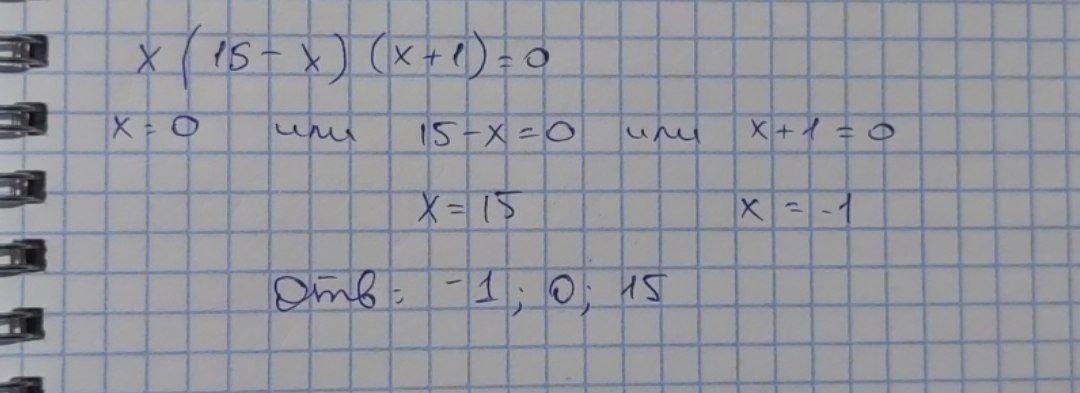 x(15-x)(x+1)=0
x=0 или 15-x=0 или x+1=0
x=15 x=-1
Отв: -1; 0; 15